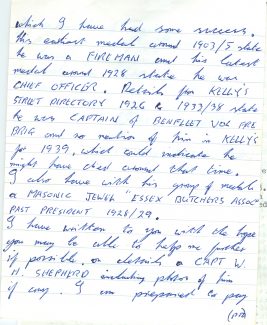 which I have had some success.
His earliest medal around 1903/5 state
he was a FIREMAN and his latest
medal around 1928 state he was
CHIEF OFFICER. Details for KELLY'S
STREET DIRECTORY 1926 & 1937/38 state
he was CAPTAIN of BENFLEET VOL FIRE
BRIG and no mention of him in KELLY'S
for 1939, which could indicate he
might have died around that time.
I also have with his group of medals
a MASONIC JEWEL "ESSEX BUTCHERS ASSOC"
PAST PRESIDENT 1928/29.
I have written to you with the hope
you may be able to help me further
if possible, on details a CAPT W.
H. SHEPHERD including photos of him
if any. I am prepared to pay
(PTO)